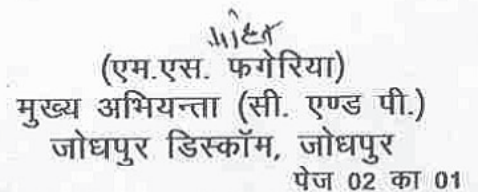 (एम.एस. फगेरिया)
मुख्य अभियन्ता (सी. एण्ड पी.)
जोधपुर डिस्कॉम, जोधपुर
पेज 02 का 01